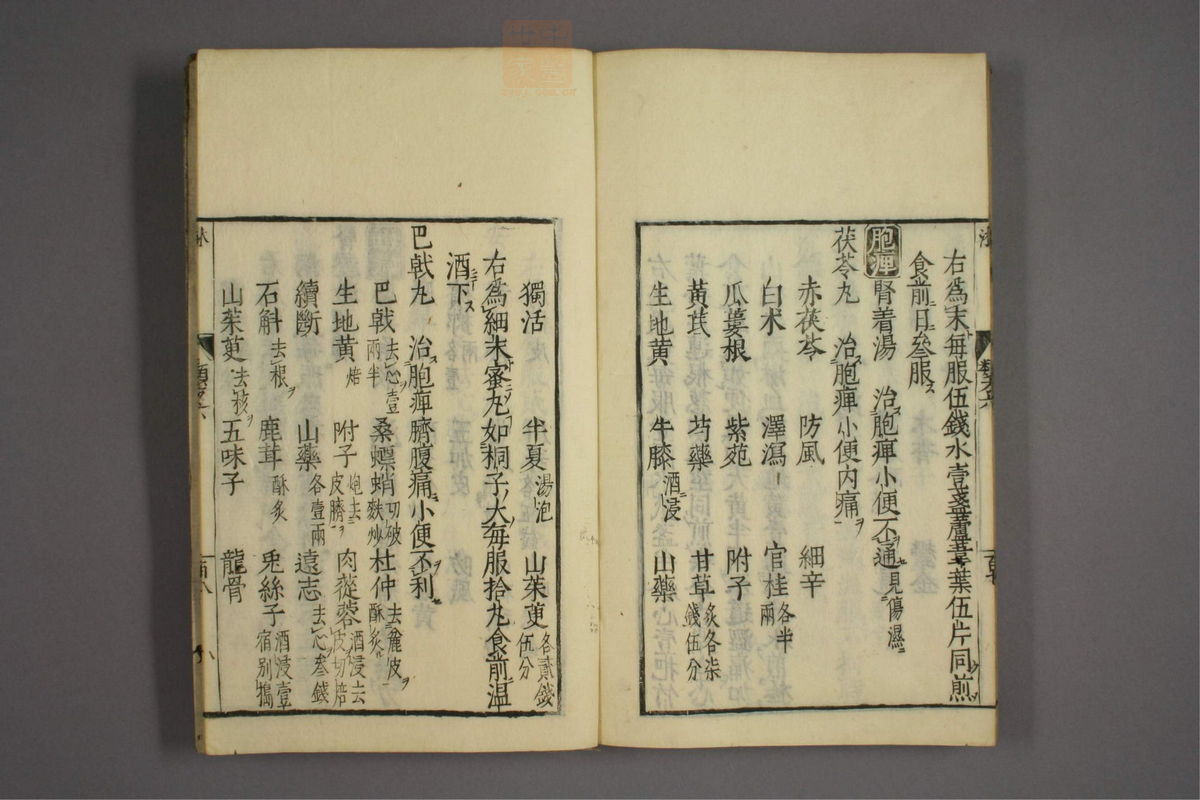 右為末每服伍錢水壹盞蘆葦葉伍片同煎
食前日叄服
胞痺 腎着湯 治胞痺小便不通見傷濕
茯苓丸 治胞痺小便內痛
赤茯苓 防風 細辛
白朮 澤瀉 官桂各半兩
瓜蔞根 紫菀 附子
黃芪 芍藥 甘草炙各柒錢伍分
生地黃 牛膝酒浸 山藥
獨活 半夏湯泡 山茱萸各貳錢伍分
右為細末蜜丸如桐子大每服拾丸食前溫
酒下
巴戟丸 治胞痺臍腹痛小便不利
巴戟去心壹兩半 桑螵蛸切破麩炒 杜仲去麄皮酥炙
生地黃焙 附子炮去皮臍 肉蓯蓉酒浸去皮切焙
續斷 山藥各壹兩 遠志去心叄錢
石斛去根 鹿茸酥炙 兎絲子酒浸壹宿別搗
山茱萸去核 五味子 龍骨